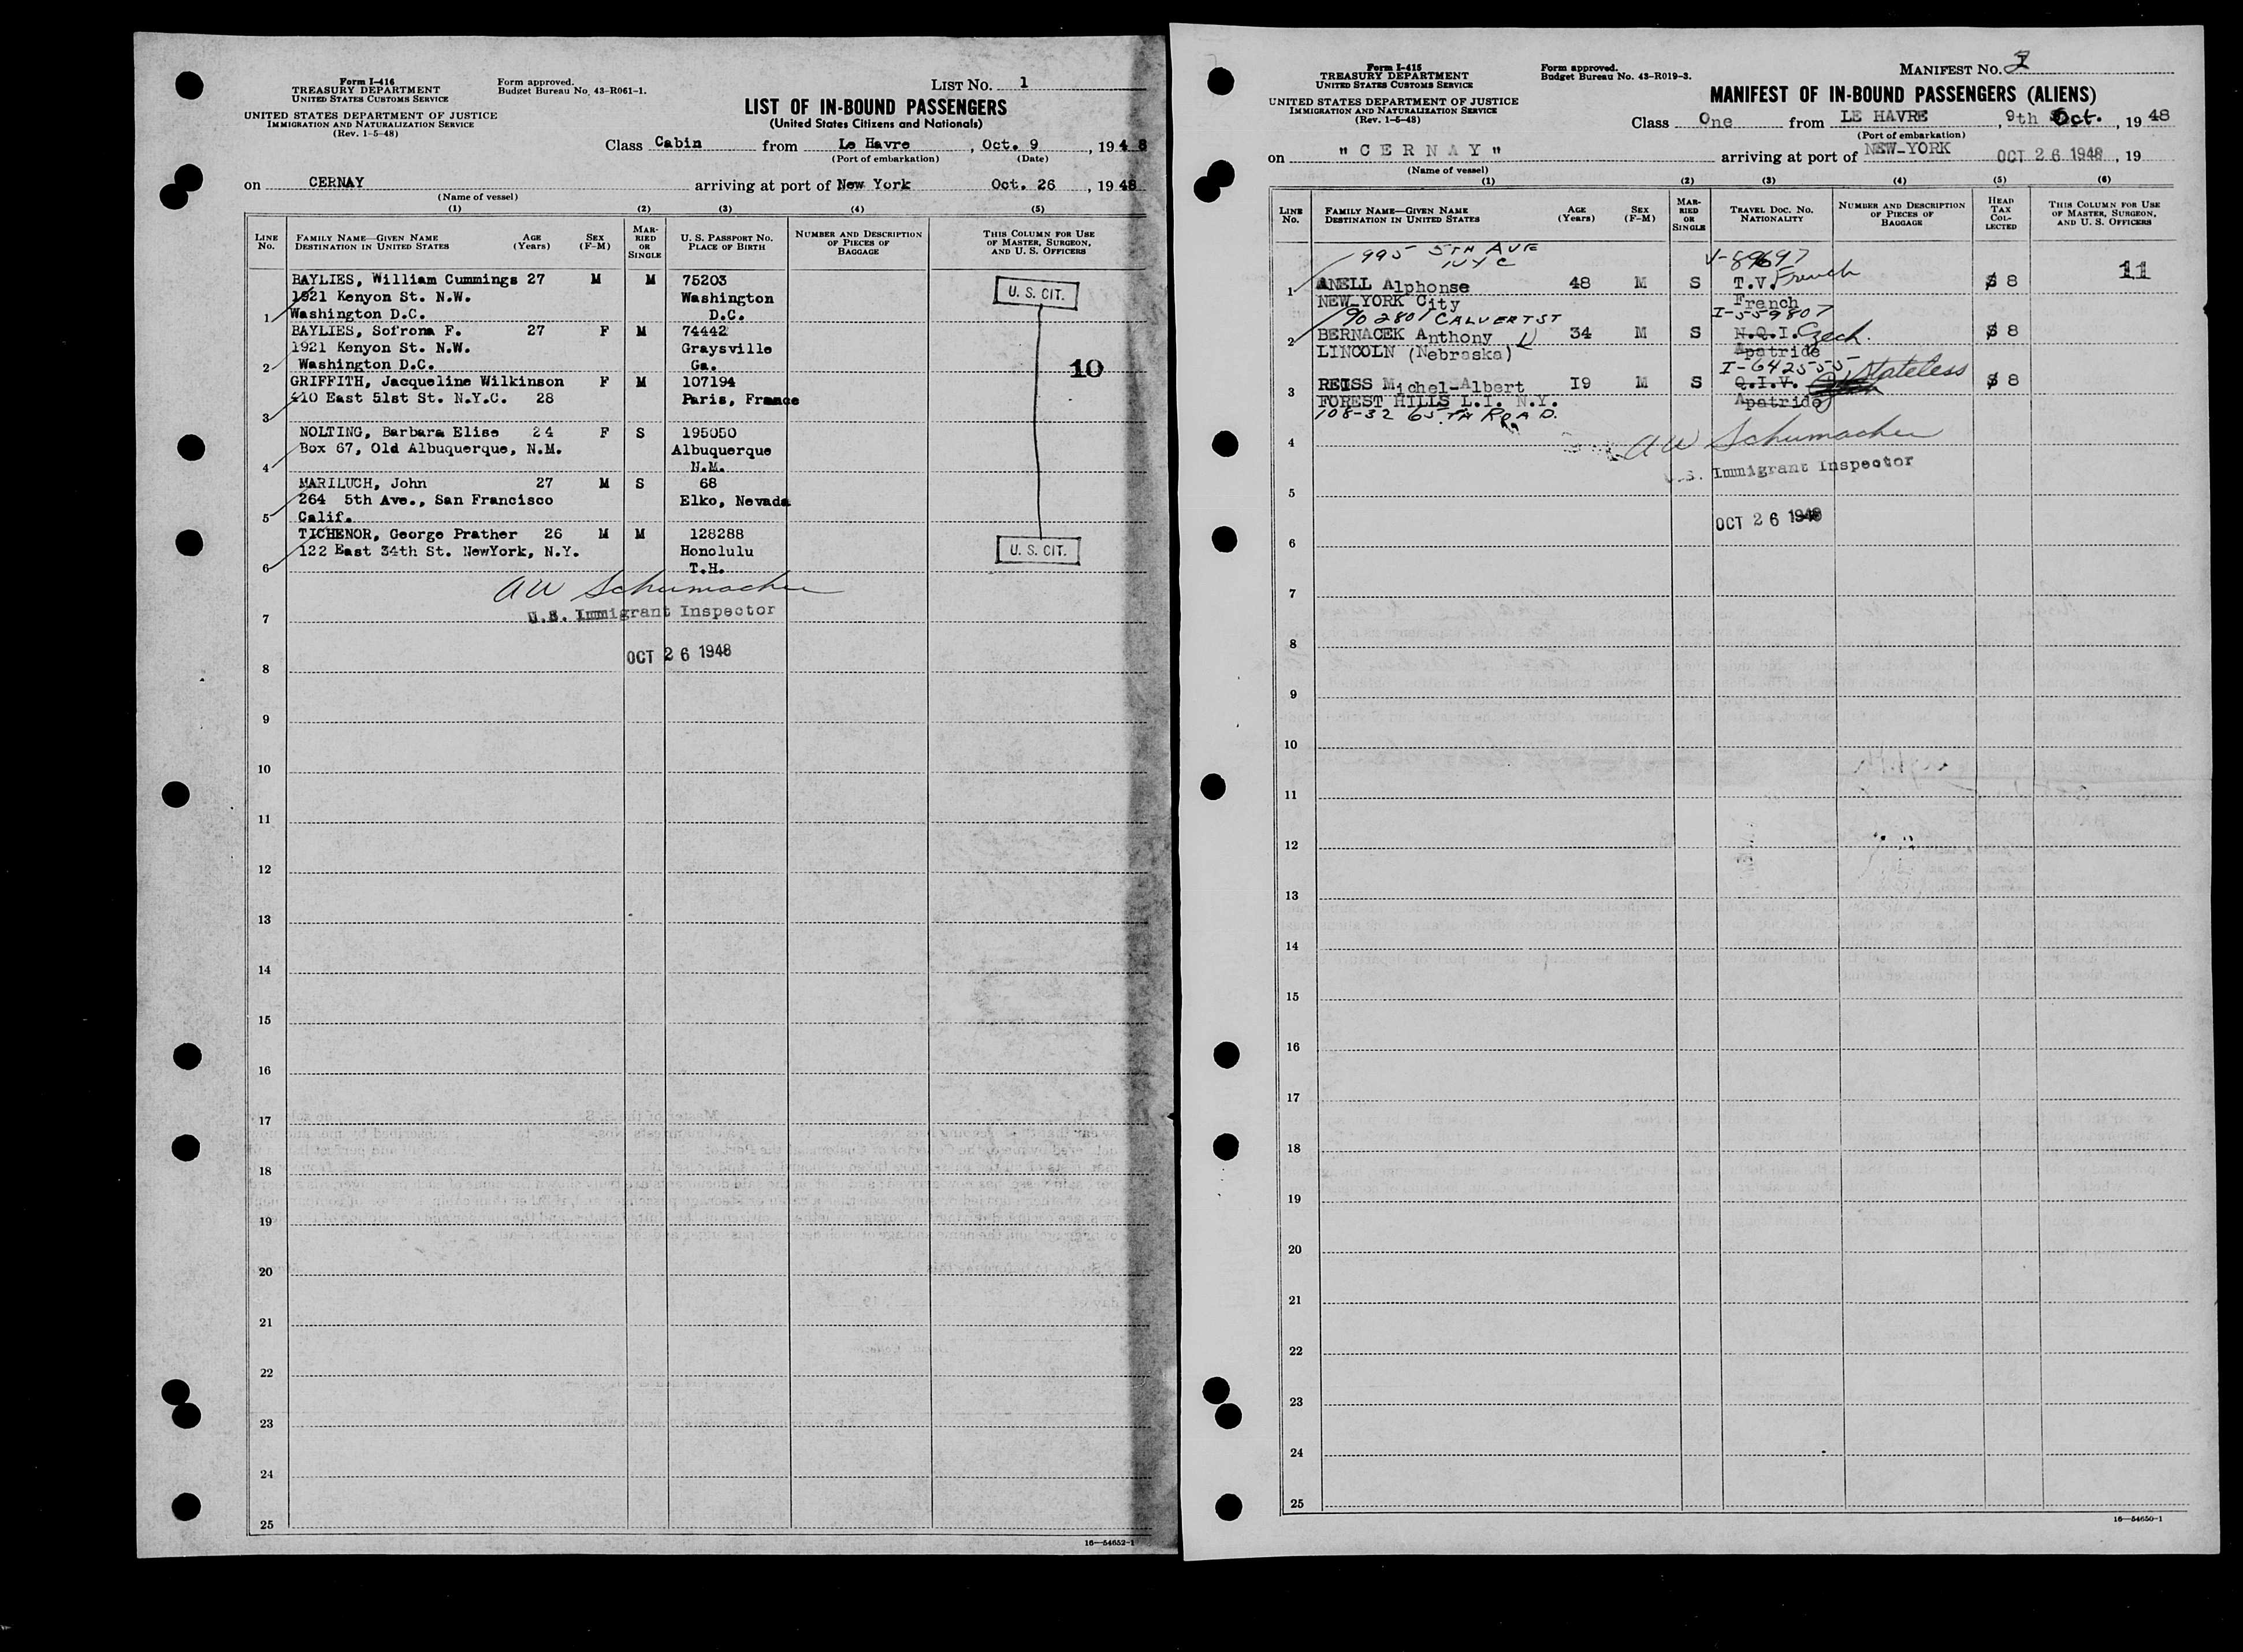 Form I-416
TREASURY DEPARTMENT
UNITED STATES CUSTOMS SERVICE
UNITED STATES DEPARTMENT OF JUSTICE
IMMIGRATION AND NATURALIZATION SERVICE
(Rev. 1-5-48)
Form approved.
Budget Bureau No. 43-R061-1.
LIST No. 1
LIST OF IN-BOUND PASSENGERS
(United States Citizens and Nationals)
Class Cabin from Le Havre, Oct. 9, 1948
(Port of embarkation) (Date)
on CERNAY arriving at port of New York Oct. 26, 1948
(Name of vessel)
(1) (2) (3) (4) (5)
LINE No. FAMILY NAME—GIVEN NAME DESTINATION IN UNITED STATES AGE (Years) SEX (F-M) MARRIED OR SINGLE U. S. PASSPORT No. PLACE OF BIRTH NUMBER AND DESCRIPTION OF PIECES OF BAGGAGE THIS COLUMN FOR USE OF MASTER, SURGEON, AND U. S. OFFICERS
BAYLIES, William Cummings 27 M M 75203
1921 Kenyon St. N.W. Washington
1 Washington D.C. D.C.
U. S. CIT.
BAYLIES, Sofrona F. 27 F M 74442
1921 Kenyon St. N.W. Graysville
2 Washington D.C. Ga.
10
GRIFFITH, Jacqueline Wilkinson F M 107194
410 East 51st St. N.Y.C. 28 Paris, France
3
NOLTING, Barbara Elise 24 F S 195050
Box 67, Old Albuquerque, N.M. Albuquerque
4 N.M.
MARILUCH, John 27 M S 68
264 5th Ave., San Francisco Elko, Nevada
5 Calif.
TICHENOR, George Prather 26 M M 128288
122 East 34th St. NewYork, N.Y. Honolulu
6 T.H.
U. S. CIT.
AW Schumacher
U.S. Immigrant Inspector
7
OCT 26 1948
8
9
10
11
12
13
14
15
16
17
18
19
20
21
22
23
24
25
16—54652-1
Form I-415
TREASURY DEPARTMENT
UNITED STATES CUSTOMS SERVICE
UNITED STATES DEPARTMENT OF JUSTICE
IMMIGRATION AND NATURALIZATION SERVICE
(Rev. 1-5-48)
Form approved.
Budget Bureau No. 43-R019-3.
MANIFEST No.
MANIFEST OF IN-BOUND PASSENGERS (ALIENS)
Class One from LE HAVRE, 9th Oct., 1948
(Port of embarkation)
on "CERNAY" arriving at port of NEW-YORK OCT 26 1948, 19
(Name of vessel)
(1) (2) (3) (4) (5) (6)
LINE No. FAMILY NAME—GIVEN NAME DESTINATION IN UNITED STATES AGE (Years) SEX (F-M) MARRIED OR SINGLE TRAVEL DOC. No. NATIONALITY NUMBER AND DESCRIPTION OF PIECES OF BAGGAGE HEAD TAX COLLECTED THIS COLUMN FOR USE OF MASTER, SURGEON, AND U. S. OFFICERS
995 5TH AVE
NYC
11
1 ANELL Alphonse 48 M S T.V. French $ 8
NEW-YORK City French
% 2801 CALVERT ST I-559807
2 BERNACEK Anthony 34 M S N.Q.I. Czech. $ 8
LINCOLN (Nebraska) Apatride
I-642555
3 REISS Michel-Albert I9 M S Q.I.V. Stateless $ 8
FOREST HILLS L.I. N.Y. Apatride
108-32 65TH ROAD.
4
AW Schumacher
U.S. Immigrant Inspector
5
OCT 26 1948
6
7
8
9
10
11
12
13
14
15
16
17
18
19
20
21
22
23
24
25
16—54650-1